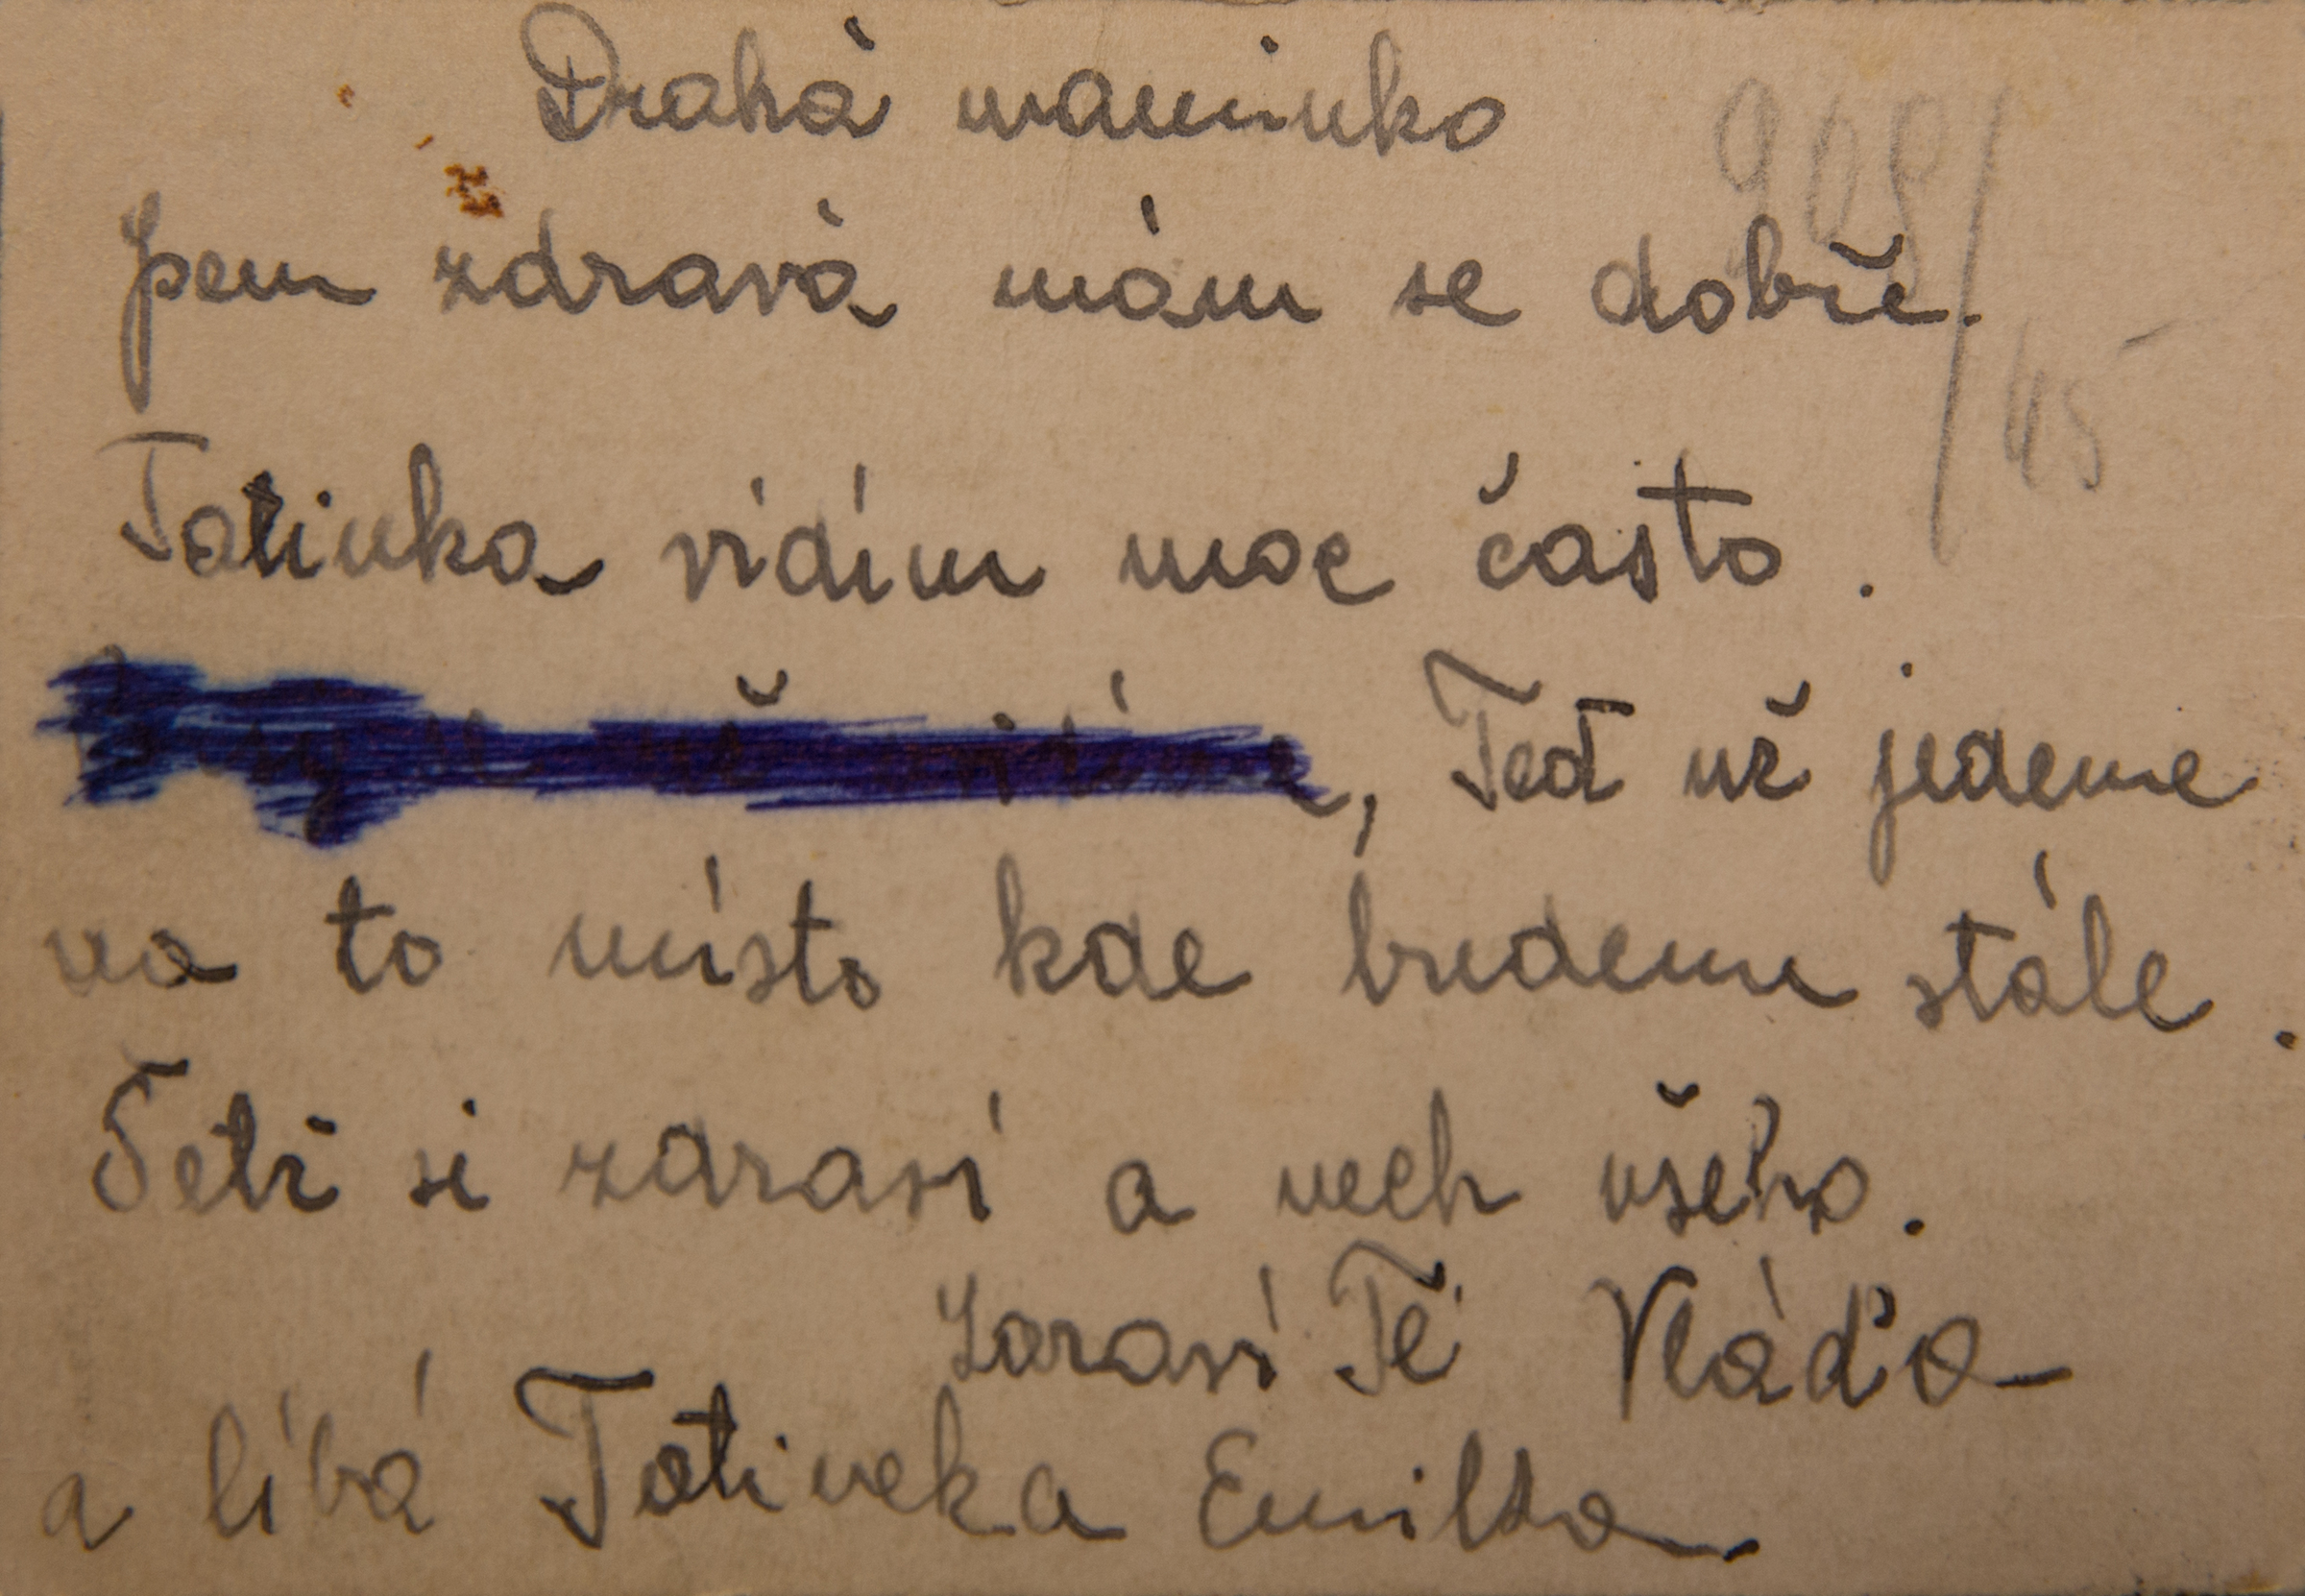 Drahá maminko
908/45
Jsem zdravá mám se dobře.
Tatinka vidím moc často.
, Teď už jedeme
na to místo kde budeme stále.
Šetři si zdraví a nech všeho.
Zdraví Tě Vláďa
a líbá Tatineka Emilka